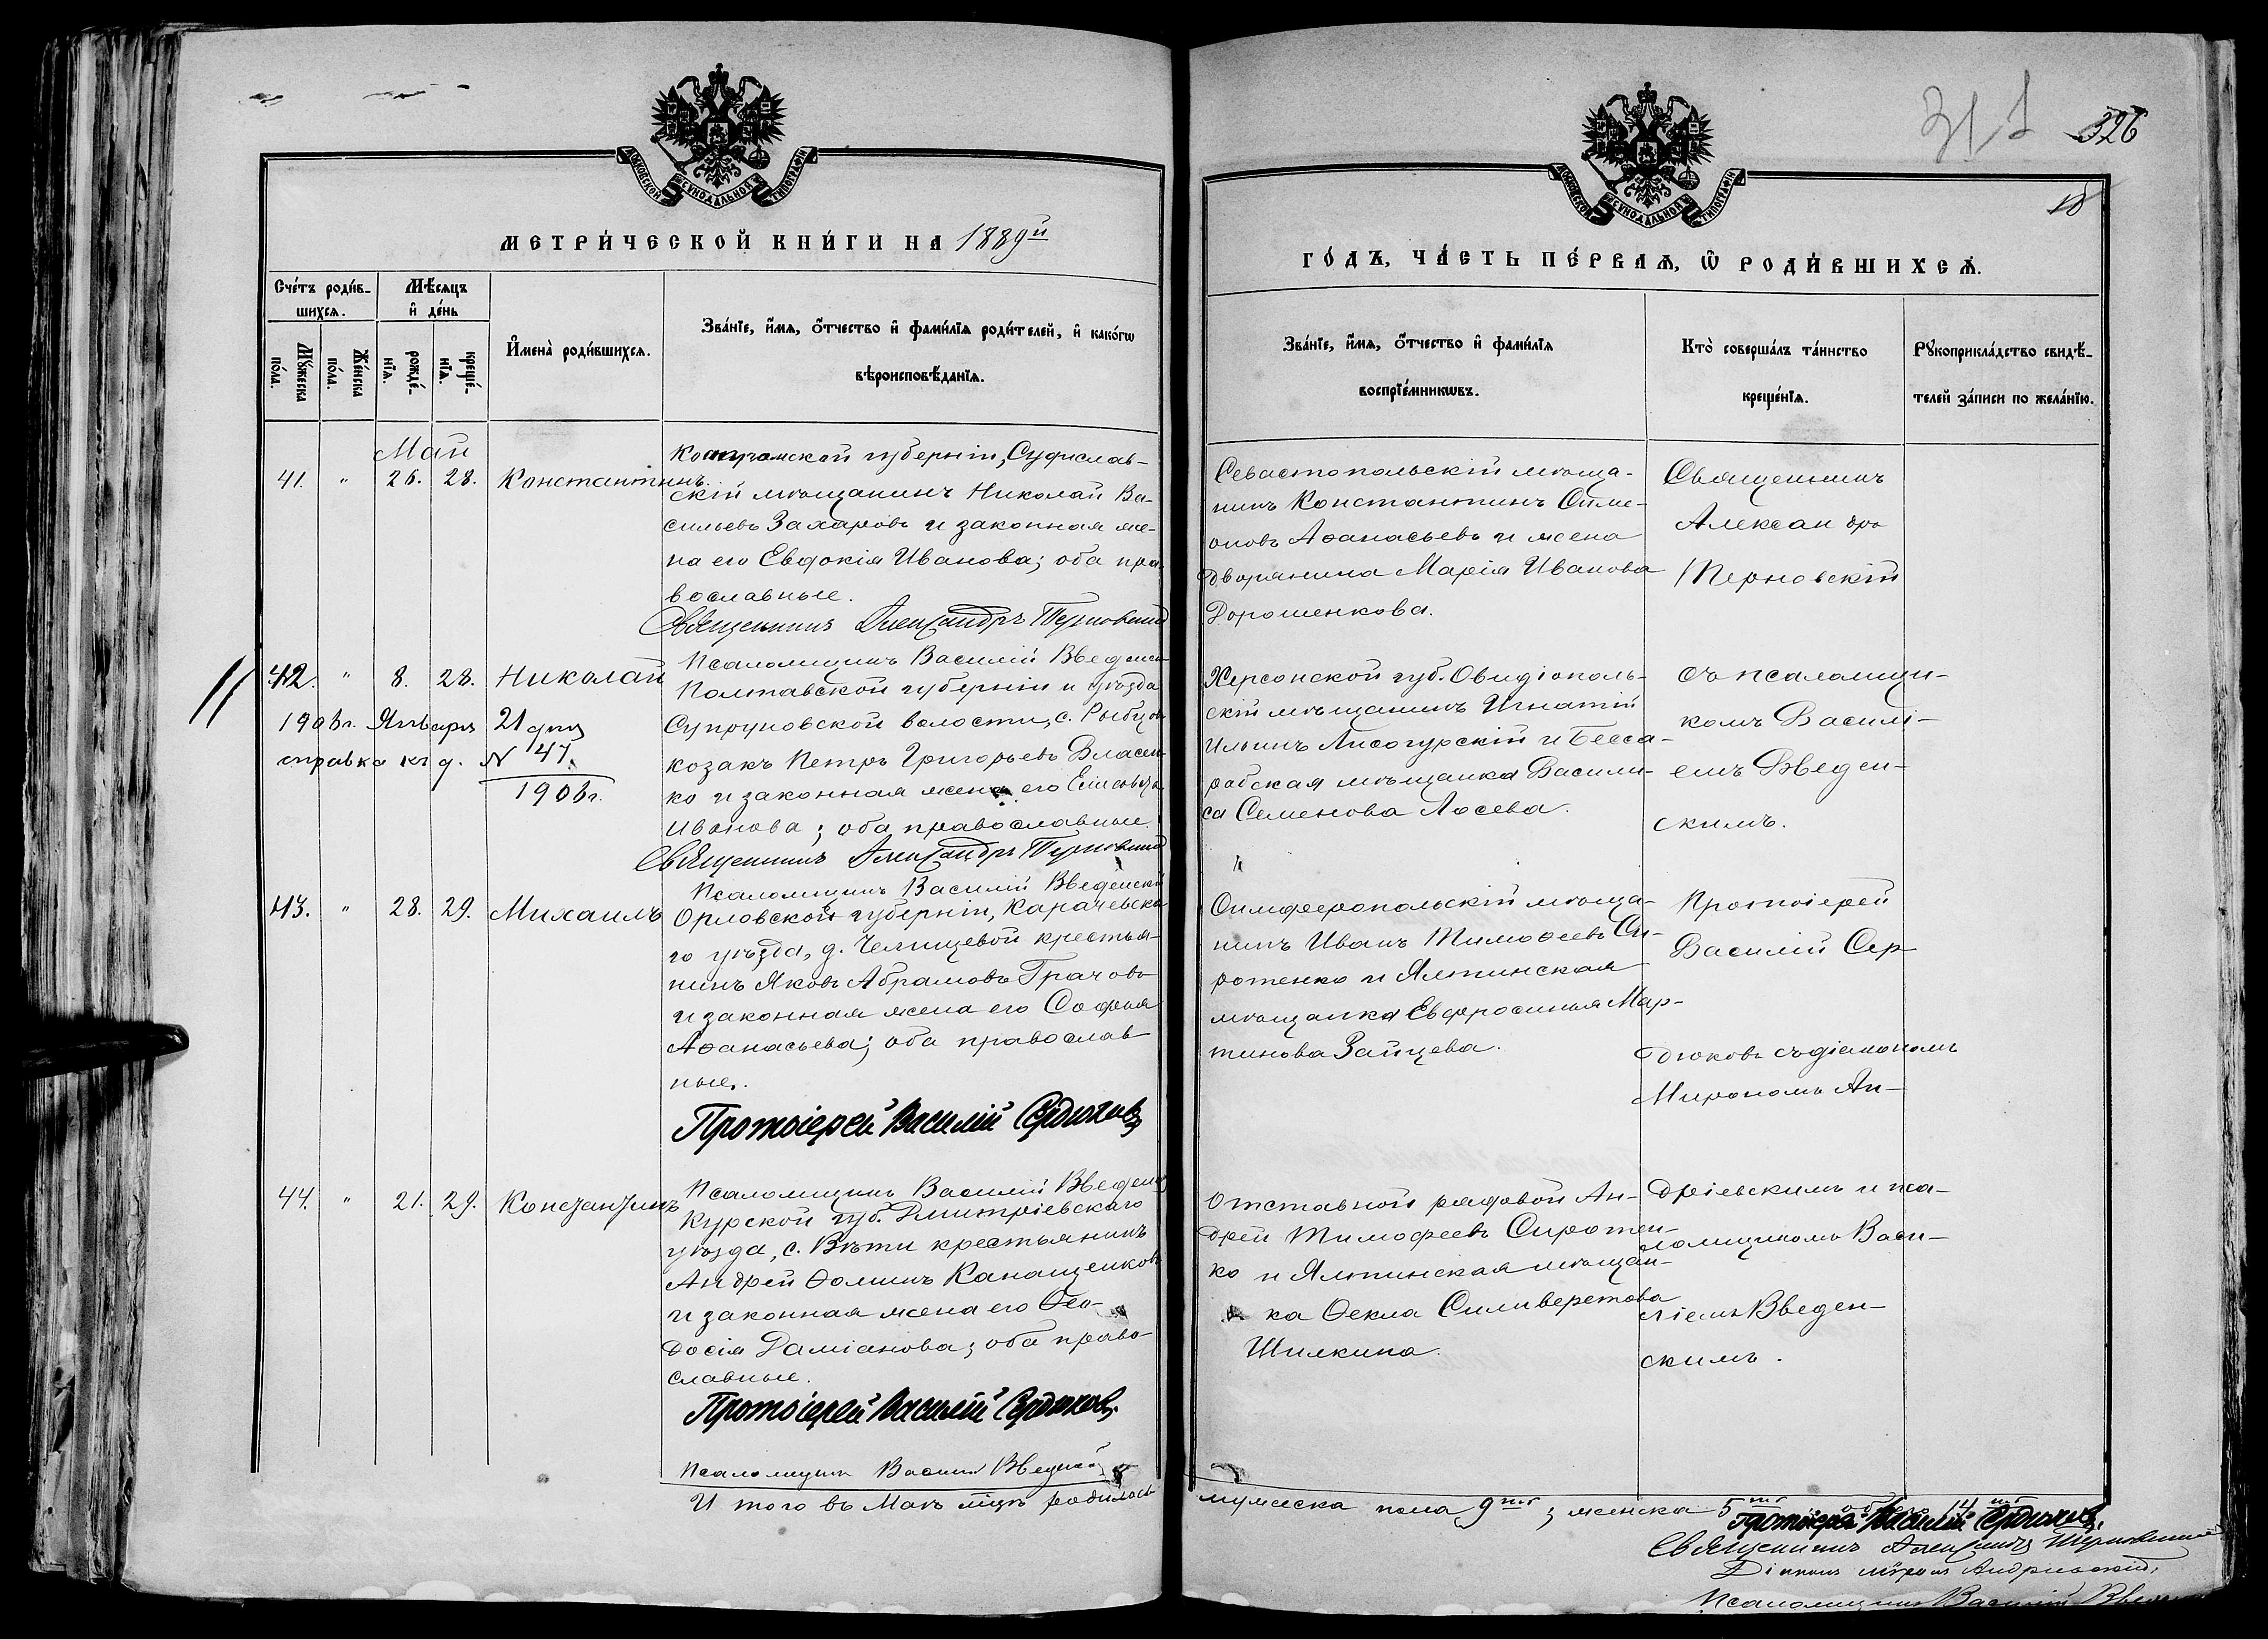 МОСКОВСКОЙ СѴНОДАЛЬНОЙ ТИПОГРАФІИ
МЕТРИ́ЧЕСКОЙ КНИ́ГИ НА 1889й
Сче́тъ роди́в-
шихся.
Мѣ́сяцъ
и҆ де́нь
Мꙋ́жеска
по́ла.
Же́нска
по́ла.
рожде́-
нїѧ.
креще́-
нїѧ.
И҆мена̀ роди́вшихсѧ.
Зва́нїе, и҆́мѧ, ѻ҆́тчество и҆ фами́лїѧ роди́телей, и҆ како́гѡ
вѣроисповѣ́данїѧ.
Май
41. " 26. 28. Константинъ.
Костромской губерніи, Судислав-
скій мѣщанинъ Николай Ва-
сильевъ Захаровъ и законная же-
на его Евдокія Иванова; оба пра-
вославные.
Священникъ Александръ Терновскій
Псаломщикъ Василій Введенскій
42. " 8. 28. Николай
1908г. Января 21 дня
справка къ д. N 47.
1908г.
Полтавской губерніи и уѣзда
Супруновской волости, с. Рыбцовъ
козакъ Петръ Григорьевъ Власен-
ко и законная жена его Елисавета
Иванова; оба православные.
Священникъ Александръ Терновскій
Псаломщикъ Василій Введенскій
43. " 28. 29. Михаилъ
Орловской губерніи, Карачевска-
го уѣзда, д. Челищевой крестья-
нинъ Яковъ Абрамовъ Грачовъ
и законная жена его Софья
Аѳанасьева; оба православ-
ные.
Протоіерей Василій Сердюковъ
Псаломщикъ Василій Введенскій
44. " 21. 29. Константинъ
Курской губ. Дмитріевскаго
уѣзда, с. Вѣти крестьянинъ
Андрей Ѳоминъ Канащенковъ
и законная жена его Ѳео-
досія Даміанова; оба право-
славные.
Протоіерей Василій Сердюковъ
Псаломщикъ Василій Введенскій
Итого въ Маѣ мѣсцѣ родилось
311 326
18
МОСКОВСКОЙ СѴНОДАЛЬНОЙ ТИПОГРАФІИ
ГО́ДЪ, ЧА́СТЬ ПЕ́РВАѦ, Ѡ҆ РОДИ́ВШИХСѦ.
Зва́нїе, и҆́мѧ, ѻ҆́тчество и҆ фами́лїѧ
воспрїе́мникѡвъ.
Кто̀ соверша́лъ та́инство
креще́нїѧ.
Рꙋкоприкла́дство свидѣ́-
телей за́писи по жела́нїю.
Севастопольскій мѣща-
нинъ Константинъ Симе-
оновъ Аѳанасьевъ и жена
дворянина Марія Иванова
Дорошенкова.
Священникъ
Александръ
Терновскій
Херсонской губ. Овидіополь-
скій мѣщанинъ Игнатій
Ильинъ Лисогурскій и Бесса-
рабская мѣщанка Васили-
са Семенова Лосева.
съ псаломщи-
комъ Василі-
емъ Введен-
скимъ.
Симферопольскій мѣща-
нинъ Иванъ Тимоѳеевъ Си-
ротенко и Ялтинская
мѣщанка Евфросинья Мар-
тинова Зайцева.
Протоіерей
Василій Сер-
дюковъ съ діакономъ
Мирономъ Ан-
Отставной рядовой Ан-
дрей Тимофеевъ Сиротен-
ко и Ялтинская мѣщан-
ка Ѳекла Силиверстова
Шилкина.
дріевскимъ и пса-
ломщикомъ Васи-
ліемъ Введен-
скимъ.
мужеска пола 9ть; женска 5ть обоего 14ть
Протоіерей Василій Сердюковъ.
Священникъ Александръ Терновскій
Діаконъ Миронъ Андріевскій.
Псаломщикъ Василій Введенскій